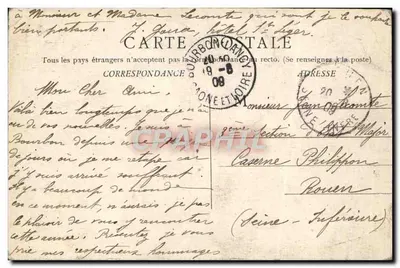 à Monsieur et Madame Lecomte qui vont je le
bien portants. J. hotel St Leger
CARTE POSTALE
Tous les pays étrangers n'acceptent pas la au recto. (Se renseignez à la poste)
CORRESPONDANCE
ADRESSE
BOURBON-LANCY
20
9-8
09
SAONE ET LOIRE
20
09
Mon Cher Ami
Voilà bien longtemps que je n'ai
eu de vos nouvelles. Je suis à
Bourbon depuis un
de jours où je me car
j'y suis arrivé souffrant.
Il y a beaucoup de monde
en ce moment, n'aurais je pas
le plaisir de vous y rencontrer
cette année. Je vous
prie mes respectueux hommages
Monsieur Lecomte
Section Major
Caserne Philippon
Rouen
(Seine-Inférieure)
CPAPHIL